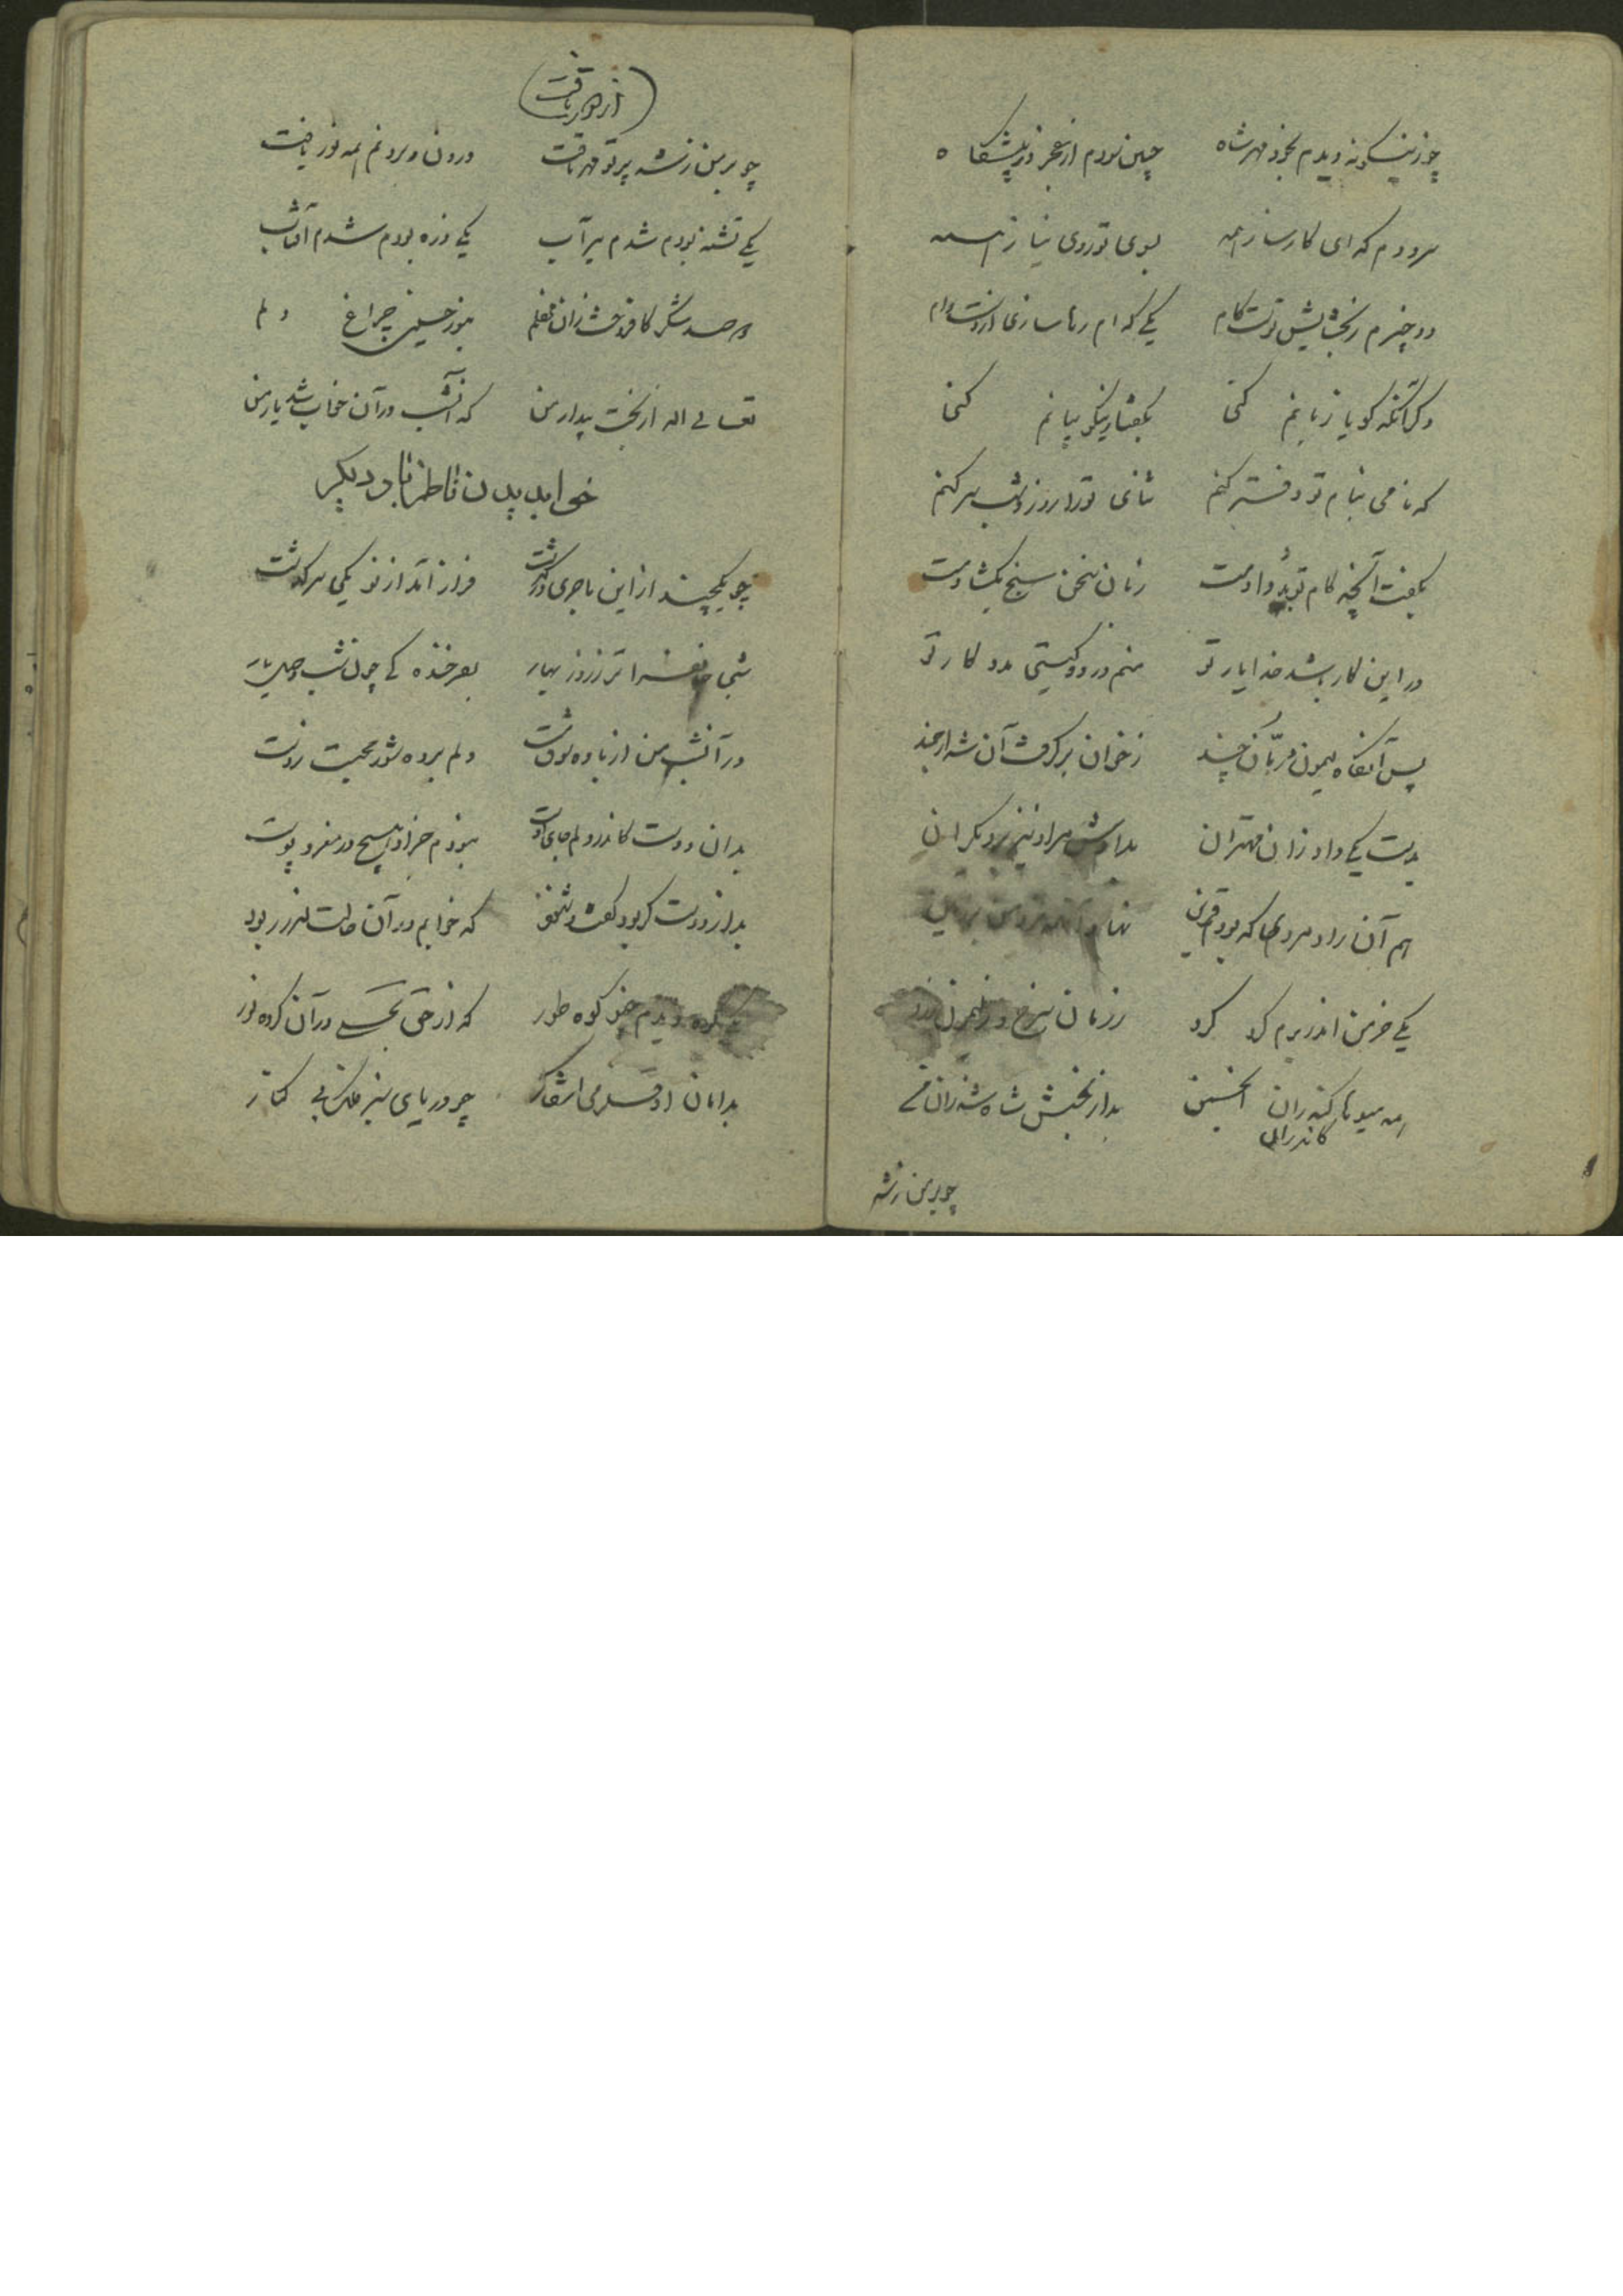 چو زینگونه دیدم بخود مهر شاه چنین سودم از عجز در پیشگاه
سرودم که ای کارساز همه بسوی تو روی نیاز همه
دو چیزم ز بخشایش تست کام یکی که ام رها سازی از دست وام
دگر آنکه گویا زبانم کنی بگفتار نیکو بیانم کنی
که نامی بنام تو دفتر کنم ثنای تو را روز و شب سر کنم
بگفت آنچه کام تو بُد دادمت زبان سخن سنج بگشادمت
در این کار باشد خدا یار تو منم در دو گیتی مددکار تو
پس آنگاه لیمون و رمّان چند ز خوان برگرفت آن شه ارجمند
بدست یکی داد زان مهتران بدادش مراد نیز بر دیگران
هم آن راد مردی که بودم قرین نهاد
یکی خرمن اندر برم گرد کرد ز رمان سرخ و ز لیمون زرد
همه میوه ها کاندران انجمن بد از بخشش شاه شد زان من
کاندران
چو بر من ز شه
(از خور تافت)
چو بر من ز شه پرتو مهر تافت درون و برونم همه نور یافت
یکی تشنه بودم شدم سیر آب یکی ذره بودم شدم آفتاب
دو صد شکر کافروخت زان محفلم بنور حسینی چراغ دلم
تعالی اله از بخت بیدار من که آنشب در آن خواب شد یار من
خواب دیدن ناظم بار دیگر
چو یکچند از این ماجری درگذشت فراز آمد از نو یکی سرگذشت
شبی جانفزا تر ز روز بهار بفرخندگی چون شب وصل یار
در آنشب من از باده شوق مست دلم برده شور محبت ز دست
بدان دوست کاندر دلم جای اوست نبودم جز او هیچ در مغز و پوست
بد از دوست گر بود گفت و شنود که خوابم در آن حالت اندر ربود
یکی کوه دیدم چو کوه طور که از حق تجلی در آن کرده نور
بدامان او قلزمی آشکار چو دریای سبز فلک بی کنار